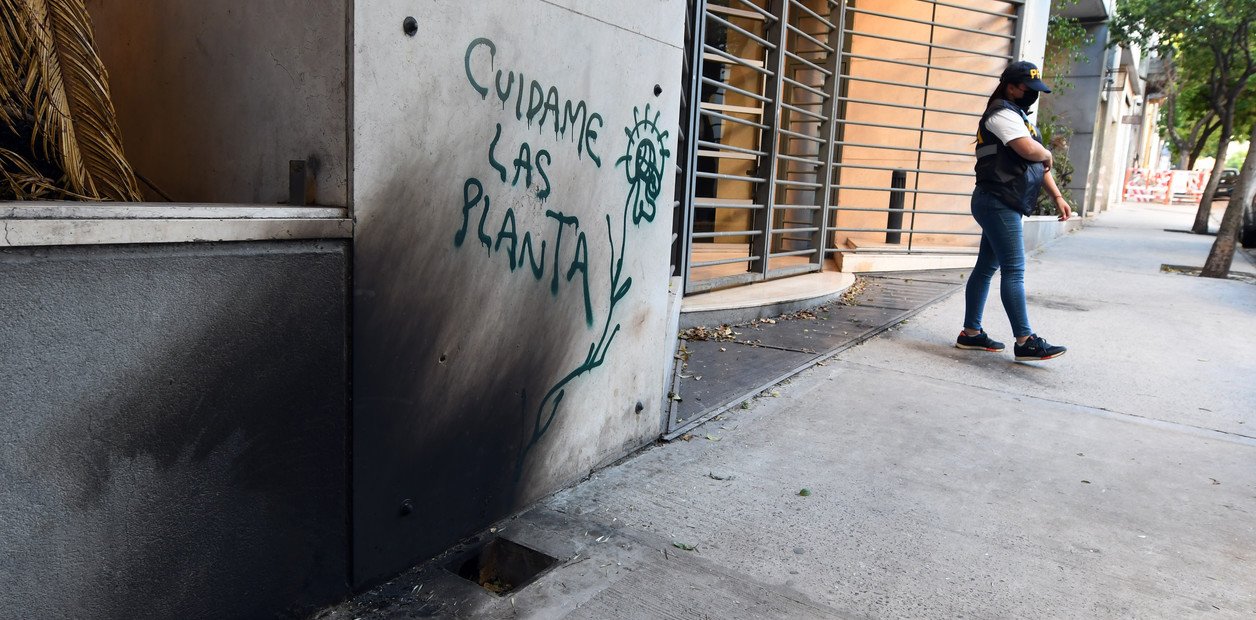 CUIDAME
LAS
PLANTA